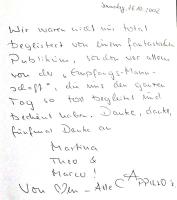 Samstag, 16.10.2002
Wir waren nicht nur total
begeistert von Eurem fantastischen
Publikum, sondern vor allem
von der "Empfangs-Mann-
schaft", die uns den ganzen
Tag so toll begleitet und
betreut haben. Danke, danke,
fünfmal Danke an
Martina
Theo &
Marco!
Von den